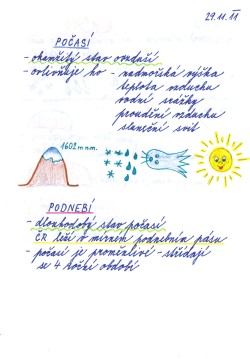 29. 11. 11
POČASÍ
- okamžitý stav ovzduší
- ovlivňuje ho - nadmořská výška
teplota vzduchu
vodní srážky
proudění vzduchu
sluneční svit
1602 m n. m.
PODNEBÍ
- dlouhodobý stav počasí
ČR leží v mírném podnebním pásu
- počasí je proměnlivé - střídají
se 4 roční období